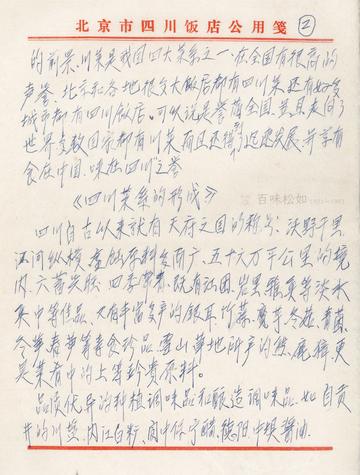 北京市四川饭店公用笺 ②
的前景。川菜是我国四大菜系之一。在全国有很高的
声誉。北京和各地很多大饭店都有四川菜还有好多
城市都有四川饭店。可以说是誉满全国。甚至来自
世界多数国家都有川菜而且还得到迅速发展。并享有
食在中国、味在四川之誉
《四川菜系的形成》
百味松如
四川自古以来就有天府之国的称号：沃野千里、
江河纵横、盛产原料多而广、五十六万平公里的境
内、六畜兴旺、四季常青、既有江团、岩鲤、雅鱼等淡水
鱼中等佳品、又有丰富多产的银耳、竹荪、魔芋、冬菇、青菌、
冬笋春笋等素食珍品。雪山草地所产的熊、鹿、獐、更
是菜肴中的上等珍贵原料。
品质优异的种植调味品和酿造调味品。如自贡
井的川盐、内江白糖、阆中保宁醋、德阳、中坝酱油